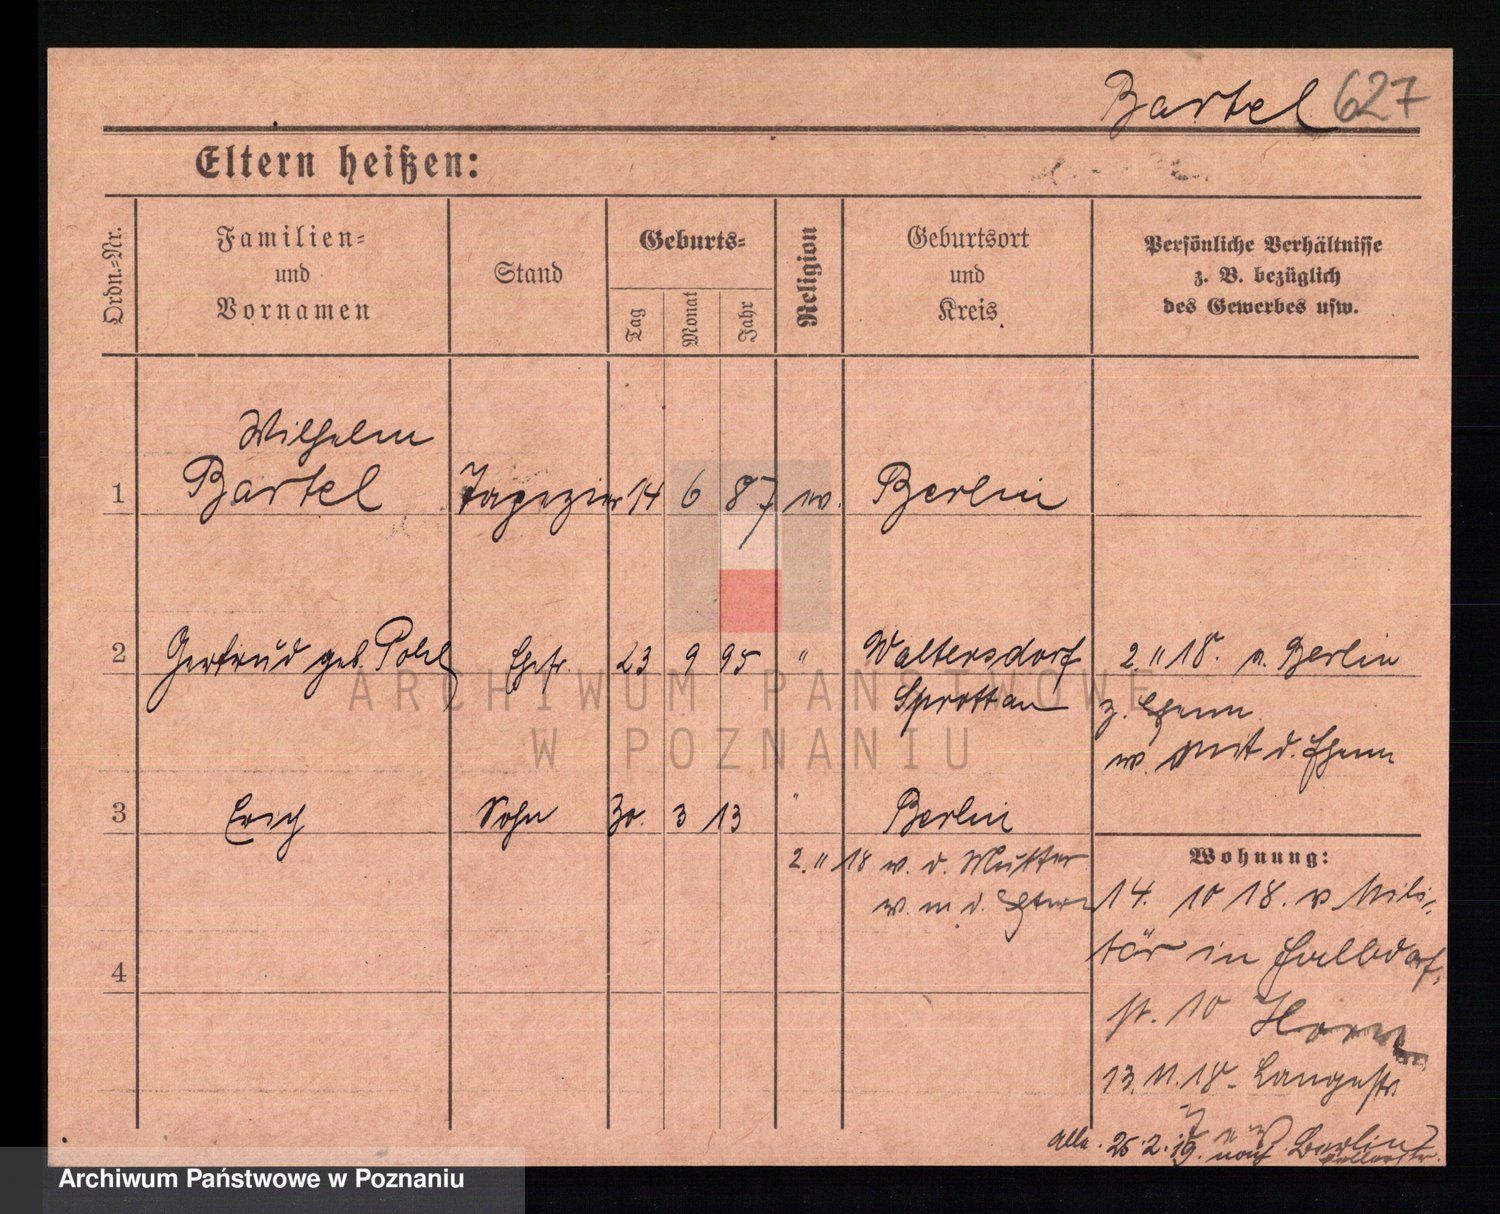 Bartel 627
Eltern heißen:
Ordn.-Nr.
Familien-
und
Vornamen
Stand
Geburts-
Tag
Monat
Jahr
Religion
Geburtsort
und
Kreis
Persönliche Verhältnisse
z. B. bezüglich
des Gewerbes usw.
Wilhelm
1 Bartel Tapezier 14 6 87 ev. Berlin
2 Gertrud geb. Pohl Ehefr. 23 9 95 " Waltersdorf 2. 11 18. v. Berlin
Sprottau z. Ehem
w. mit d. Ehem
3 Erich Sohn 30. 3 13 " Berlin
2. 11 18 v. d. Mutter
w. m d. Eltern
Wohnung:
14. 10 18. v Mili-
tär in
st. 10
4
13. 11. 18 - Langestr
7
Alle. 25.2.19. nach Berlin
ARCHIWUM PAŃSTWOWE
W POZNANIU
Archiwum Państwowe w Poznaniu